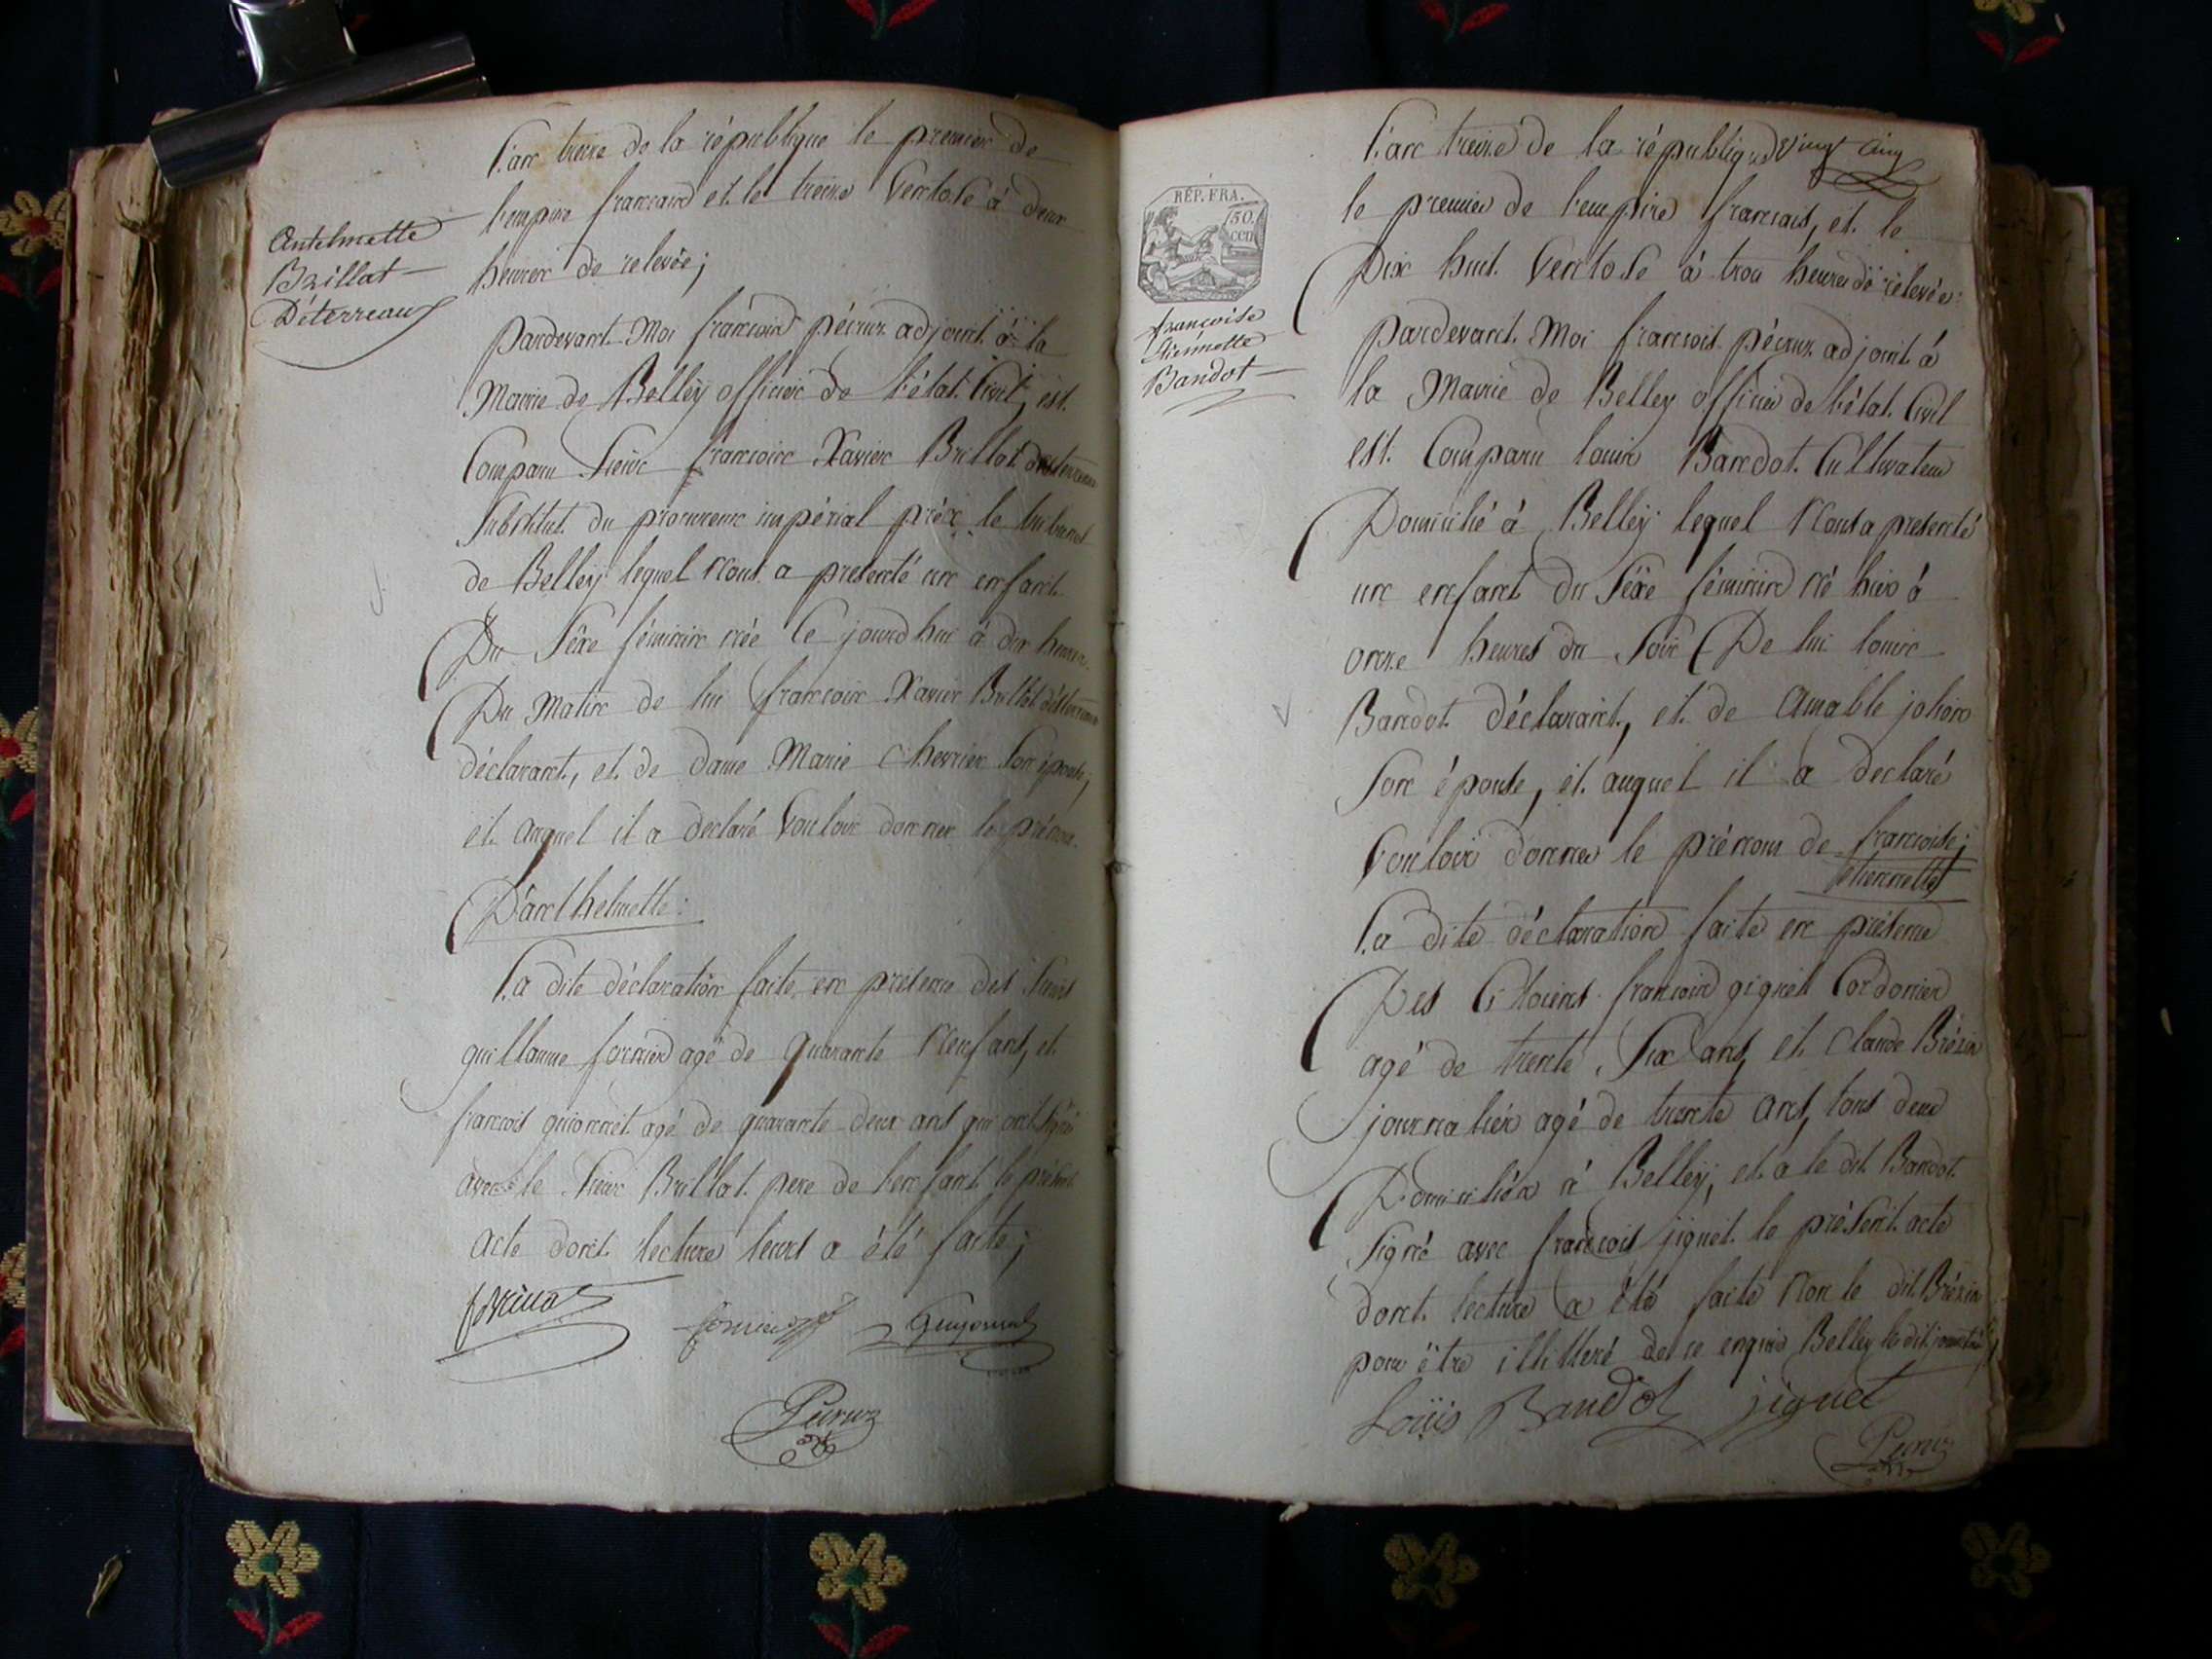 Antelmette
Brillat
Déterreaux
L'an treize de la république le premier de
l'empire francais et le treize Ventose à deux
heures de relevée;
pardevant Moi francois pécruz adjoint à la
Mairie de Belley officier de l'état Civil, est
Comparu Sieur francois Xavier Brillat
Substitut du procureur impérial près le tribunal
de Belley lequel Nous a presenté un enfant
Du Sêxe féminin née Ce jourd'hui à dix heures
Du Matin de lui francois Xavier Brillat
déclarant, et de dame Marie Chevrier Son épouse,
et auquel il a declaré Vouloir donner le prénom
D'anthelmette:
La dite déclaration faite en présence des Sieurs
guillaume fornier agé de quarante Neuf ans, et
francois guionnet agé de quarante deux ans qui ont signé
avec le Sieur Brillat pere de l'enfant le présent
acte dont lecture leurs a été faite;
Guyonnet
Pécruz
Vingt Cinq
RÉP. FRA.
50.
cen.
françoise
étiennette
Bandot
L'an treize de la république
le premier de l'empire francais, et le
Dix huit Ventose à trois heures de relevée:
pardevant Moi francois pécruz adjoint à
la Mairie de Belley officier de l'état Civil
est Comparu louis Bandot Cultivateur
Domicilié à Belley lequel Nous a presenté
un enfant du Sêxe féminin né hier à
onze heures du Soir De lui louis
Bandot déclarant, et de Amable
Son épouse, et auquel il a declaré
Vouloir donner le prénom de francoise;
étiennette
La dite déclaration faite en présence
Des Citoiens francois giguet Cordonier
agé de trente Six ans, et Claude Brézin
journalier agé de trente ans, tous deux
Domiciliés à Belley, et a le dit Bandot
Signé avec francois jiguet le présent acte
dont lecture a été faite Non le dit Brézin
pour être illitteré de ce enquis Belley le dit jour
Loüis Bandot jiguet
Pécruz